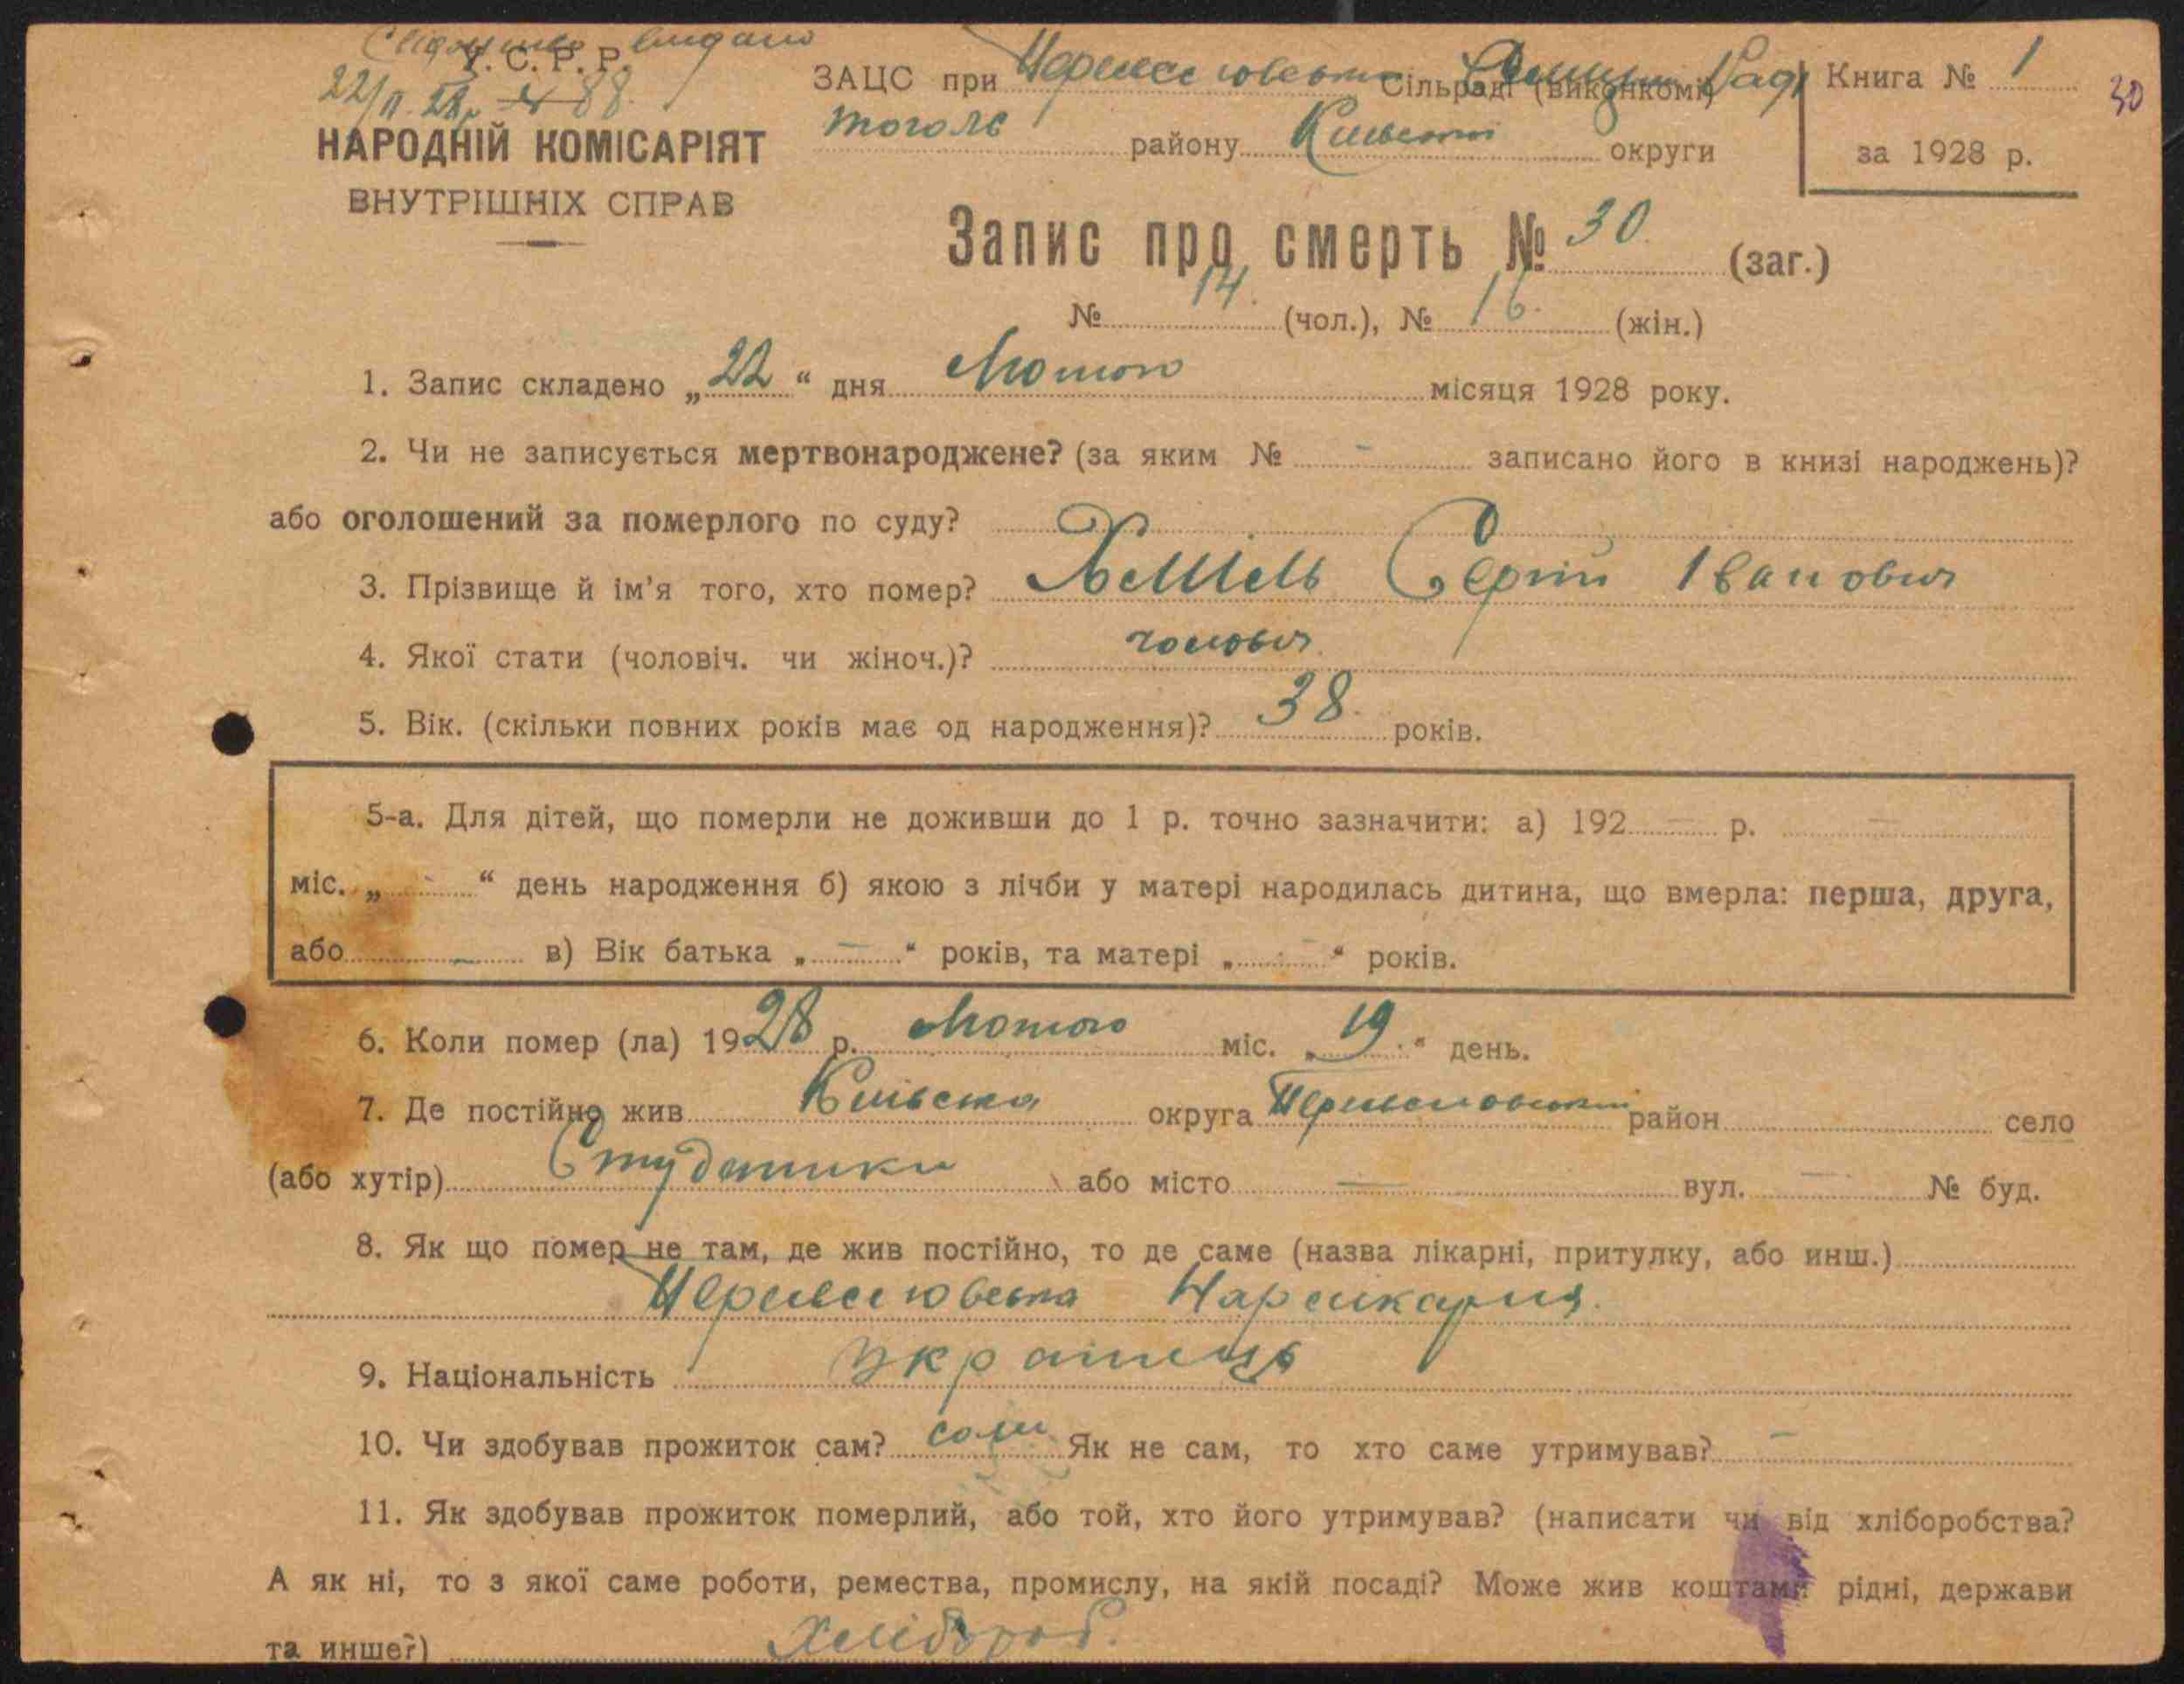 видано
У. С. Р. Р.
22/II 28р № 88.
НАРОДНІЙ КОМІСАРІЯТ
ВНУТРІШНІХ СПРАВ
ЗАЦС при Сільраді (виконкомі)
тогож району Київської округи
Книга № 1
за 1928 р.
30
Запис про смерть № 30 (заг.)
№ 14. (чол.), № 16. (жін.)
1. Запис складено „22“ дня Лютого місяця 1928 року.
2. Чи не записується мертвонароджене? (за яким № – записано його в книзі народжень)?
або оголошений за померлого по суду?
3. Прізвище й ім'я того, хто помер? Сергій Іванович
4. Якої стати (чоловіч. чи жіноч.)? чоловіч.
5. Вік. (скільки повних років має од народження)? 38. років.
5-а. Для дітей, що померли не доживши до 1 р. точно зазначити: а) 192 – р. –
міс. „ – “ день народження б) якою з лічби у матері народилась дитина, що вмерла: перша, друга,
або – в) Вік батька „ – “ років, та матері „ – “ років.
6. Коли помер (ла) 1928 р. Лютого міс. „19.“ день.
7. Де постійно жив Київська округа район село
(або хутір) Студеники або місто – вул. – № буд.
8. Як що помер не там, де жив постійно, то де саме (назва лікарні, притулку, або инш.)
Нарлікарня.
9. Національність Українець
10. Чи здобував прожиток сам? сам Як не сам, то хто саме утримував? –
11. Як здобував прожиток померлий, або той, хто його утримував? (написати чи від хліборобства?
А як ні, то з якої саме роботи, ремества, промислу, на якій посаді? Може жив коштами рідні, держави
та инше?) Хлібороб.